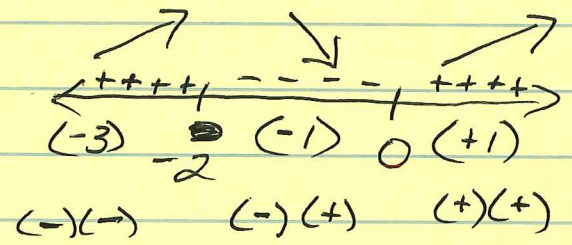 ++++ - - - - ++++
(-3) -2 (-1) 0 (+1)
(-)(-) (-)(+) (+)(+)